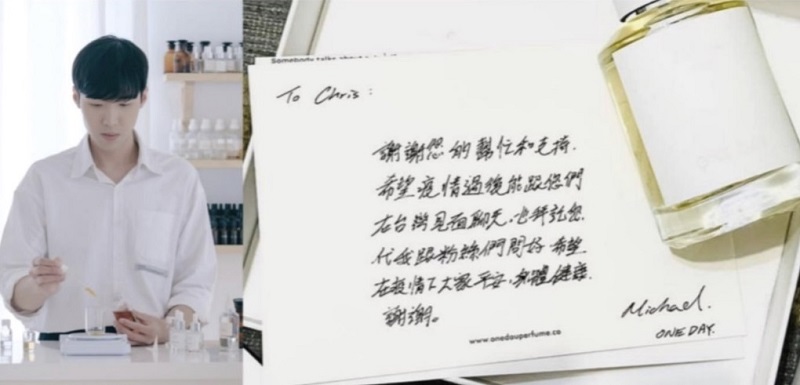 Somebody talks about
To Chris :
謝謝您的幫忙和支持.
希望疫情過後能跟您們
在台灣見面聊天. 也拜託您
代我跟粉絲們問好 希望
在疫情下大家平安, 身體健康.
謝謝。
Michael.
ONE DAY.
www.onedayperfume.co